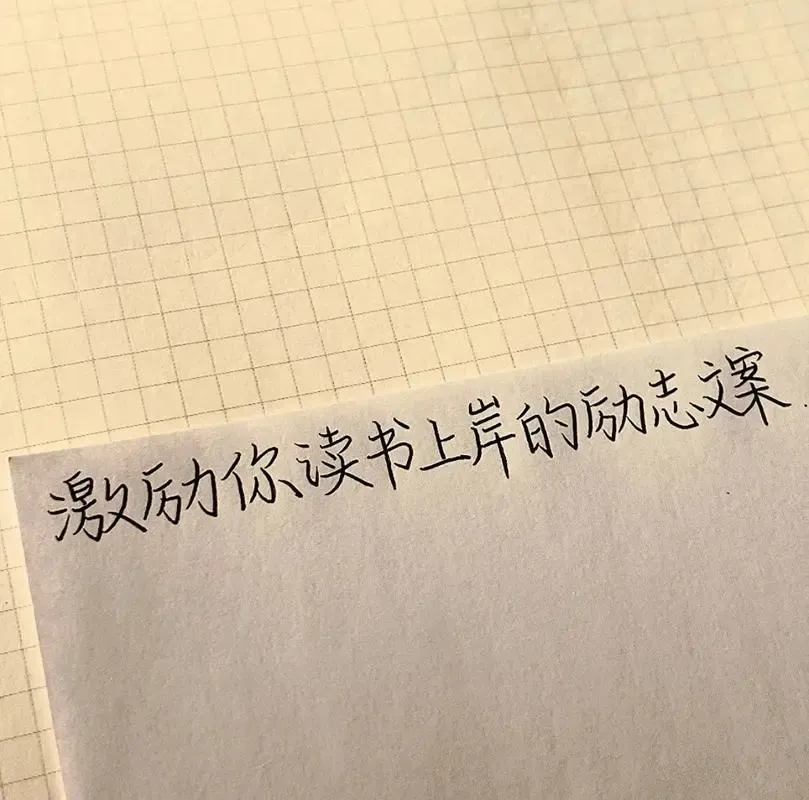 激励你读书上岸的励志文案.